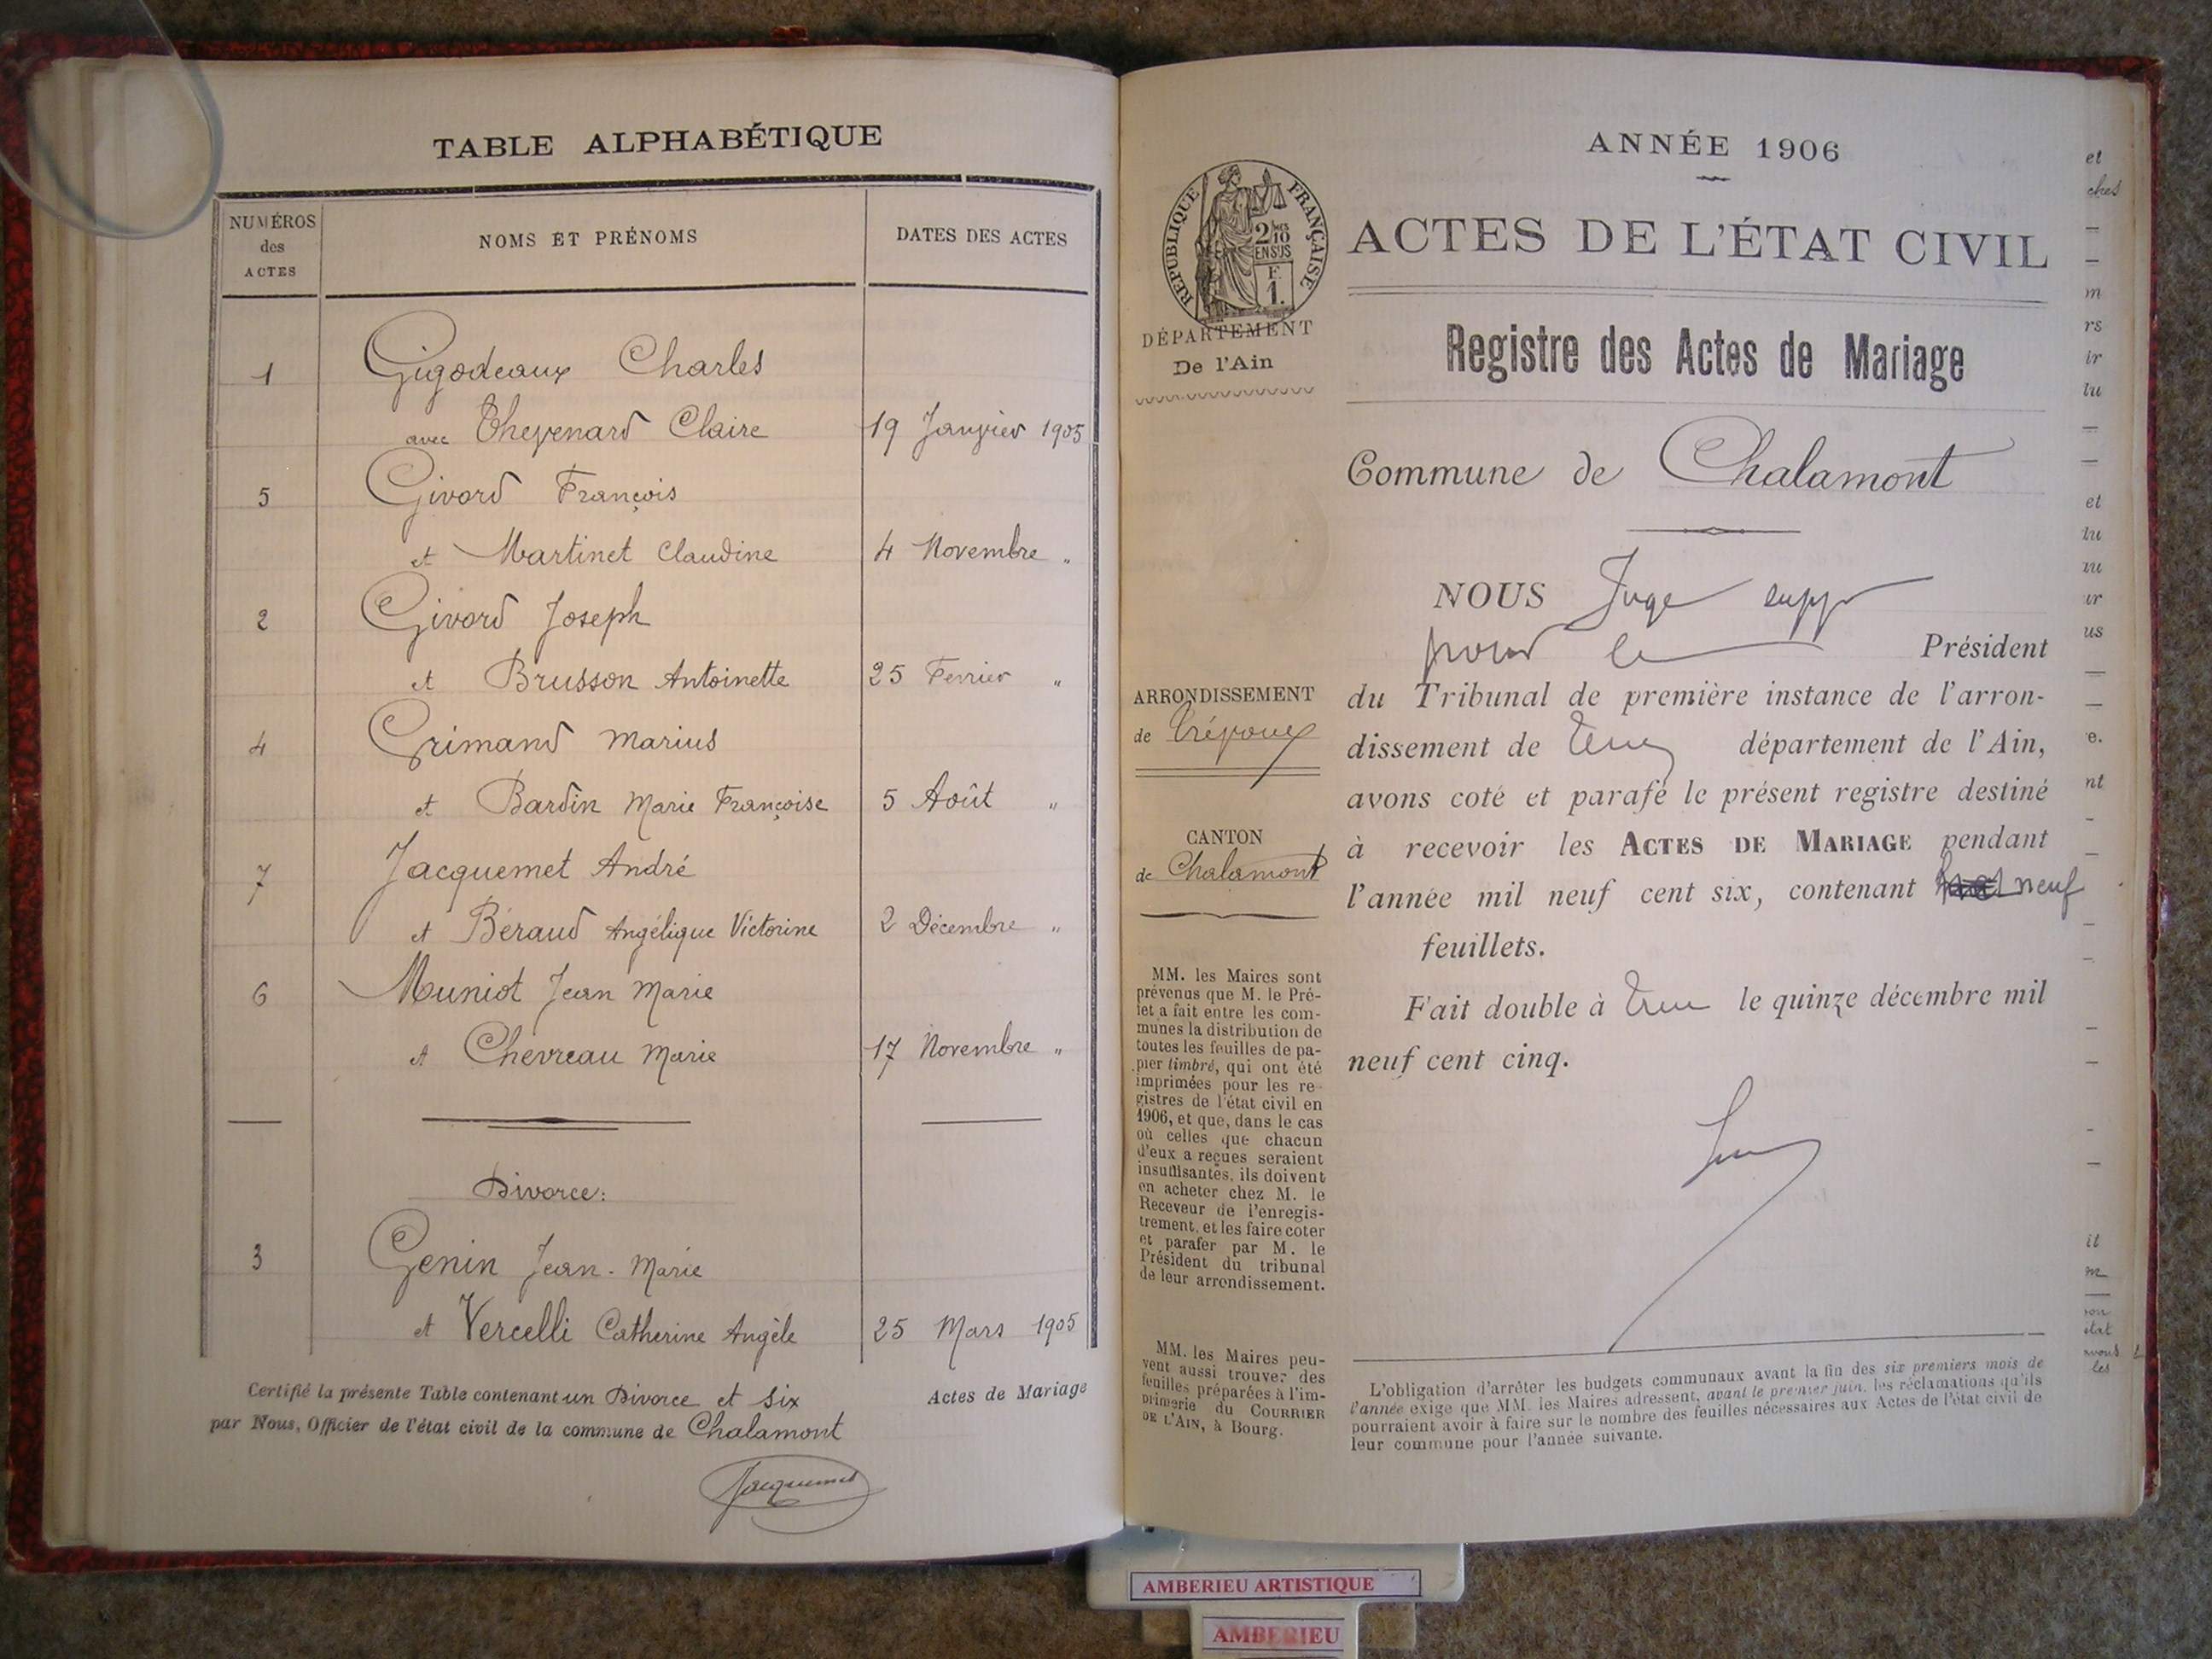 TABLE ALPHABÉTIQUE
NUMÉROS
des
ACTES
NOMS ET PRÉNOMS
DATES DES ACTES
1 Gigodeaux Charles
avec Thevenard Claire 19 Janvier 1905
5 Givord François
et Martinet Claudine 4 Novembre "
2 Givord Joseph
et Brusson Antoinette 25 Fevrier "
4 Grimand Marius
et Bardin Marie Françoise 5 Août "
7 Jacquemet André
et Béraud Angélique Victorine 2 Décembre "
6 Muniot Jean Marie
et Chevreau Marie 17 Novembre "
Divorce:
3 Genin Jean-Marie
et Vercelli Catherine Angèle 25 Mars 1905
Certifié la présente Table contenant un Divorce et six Actes de Mariage
par Nous, Officier de l'état civil de la commune de Chalamont
Jacquemet
ANNÉE 1906
ACTES DE L'ÉTAT CIVIL
Registre des Actes de Mariage
Commune de Chalamont
NOUS Juge supp
pour le Président
du Tribunal de première instance de l'arron-
dissement de département de l'Ain,
avons coté et parafé le présent registre destiné
à recevoir les ACTES DE MARIAGE pendant
l'année mil neuf cent six, contenant neuf
feuillets.
Fait double à le quinze décembre mil
neuf cent cinq.
L'obligation d'arrêter les budgets communaux avant la fin des six premiers mois de
l'année exige que MM. les Maires adressent, avant le premier juin, les réclamations qu'ils
pourraient avoir à faire sur le nombre des feuilles nécessaires aux Actes de l'état civil de
leur commune pour l'année suivante.
RÉPUBLIQUE FRANÇAISE
2/10
EN SUS
F.
1.
DÉPARTEMENT
De l'Ain
ARRONDISSEMENT
de Trévoux
CANTON
de Chalamont
MM. les Maires sont
prévenus que M. le Pré-
fet a fait entre les com-
munes la distribution de
toutes les feuilles de pa-
pier timbré, qui ont été
imprimées pour les re-
gistres de l'état civil en
1906, et que, dans le cas
où celles que chacun
d'eux a reçues seraient
insuffisantes, ils doivent
en acheter chez M. le
Receveur de l'enregis-
trement, et les faire coter
et parafer par M. le
Président du tribunal
de leur arrondissement.
MM. les Maires peu-
vent aussi trouver des
feuilles préparées à l'im-
primerie du COURRIER
DE L'AIN, à Bourg.
et
ches
m
rs
ir
lu
et
lu
ir
us
e.
nt
it
m
son
état
nous
les
AMBERIEU ARTISTIQUE
AMBERIEU